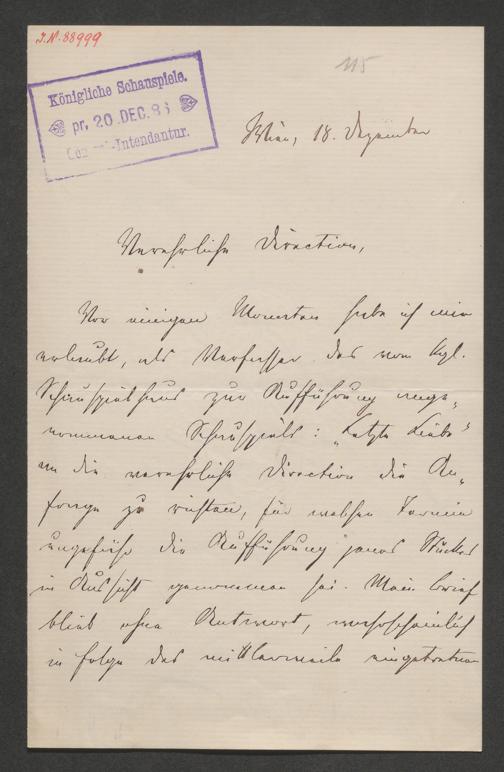 J.N. 88999
115
Königliche Schauspiele.
pr. 20. DEC. 86
-Intendantur.
Wien, 18. Dezember
Verehrliche Direction,
Vor einigen Monaten habe ich mir
erlaubt, als Verfasser des vom kgl.
Schauspielhaus zur Aufführung ange-
nommenen Schauspiels: „Letzte Liebe"
an die verehrliche Direction die An-
frage zu richten, für welchen Termin
ungefähr die Aufführung jenes Stückes
in Aussicht genommen sei. Mein Brief
blieb ohne Antwort, wahrscheinlich
in Folge des mittlerweile eingetretenen